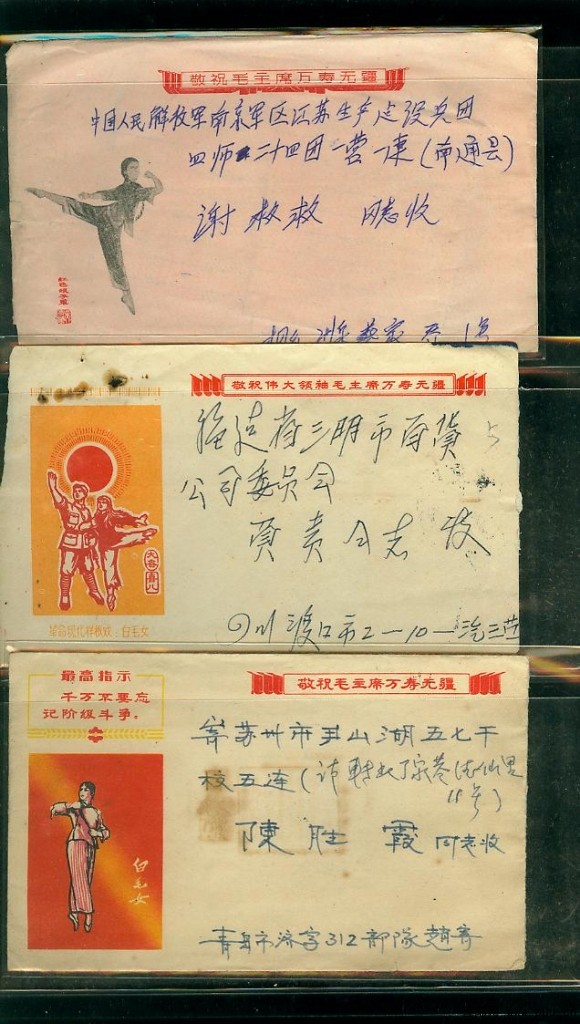 敬祝毛主席万寿无疆
中国人民解放军南京军区江苏生产建设兵团
四师二十四团一营一连(南通县)
谢救救 同志收
红色娘子军
敬祝伟大领袖毛主席万寿无疆
福建省三明市百货
公司委员会
贾贵 同志 收
四川渡口市2-10-
革命现代样板戏·白毛女
最高指示
千万不要忘
记阶级斗争。
敬祝毛主席万寿无疆
寄苏州市尹山湖五七干
校五连(请转
11号)
陳胜霞 同志收
白毛女
青岛市济字312部隊趙寄